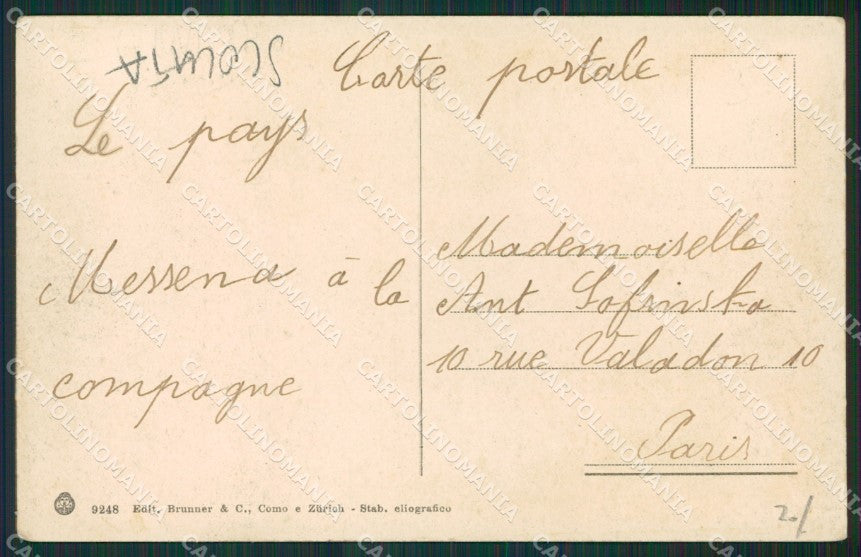 Carte postale
Le pays
Messena à la
compagne
Mademoiselle
Ant Lofsinska
10 rue Valadon 10
Paris
9248 Edit. Brunner & C., Como e Zürich - Stab. eliografico
2./
CARTOLINOMANIA